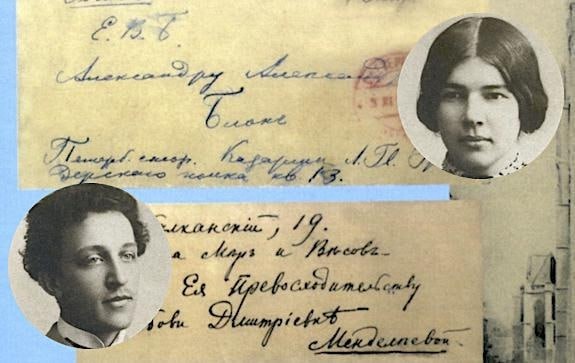 Е. В. Б.
Александру Алексан
Блокъ
Петерб. стор. Казармы Л. Гв. Гр
дерского полка кв. 13.
лканскій, 19.
а Мѣръ и Вѣсовъ
Ея Превосходительству
бови Дмитріевнѣ
Менделѣевой